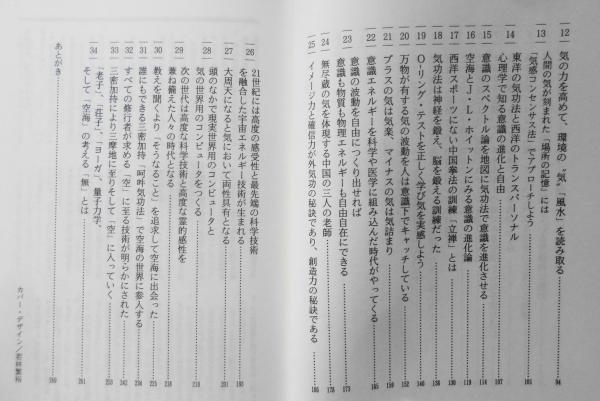 12 気の力を高めて、環境の〝気〟「風水」を読み取る 94
13 人間の気が刻まれた「場所の記憶」には
「気感コンセンサス法」でアプローチしよう 101
14 東洋の気功法と西洋のトランスパーソナル
心理学で知る意識の進化と自由 107
15 意識のスペクトル論を地図に気功法で意識を進化させる 114
16 空海とJ・L・ホイットンにみる意識の進化論
17 西洋スポーツにない中国拳法の訓練「立禅」とは
18 気功法は神経を鍛え、脳を鍛える訓練だった
19 O-リング・テストを正しく学び気を実感しよう
20 万物が有する気の波動を人は意識下でキャッチしている 152
21 プラスの気は気楽、マイナスの気は気詰まり
22 意識エネルギーを科学や医学に組み込んだ時代がやってくる 165
23 意識の波動を自由につくり出せれば
意識も物質も物理エネルギーも自由自在にできる 173
24 無尽蔵の気を体現する中国の三人の老師 178
25 イメージ力と確信力が外気功の秘訣であり、創造力の秘訣である 186
26 21世紀には高度の感受性と最先端の科学技術
を融合した宇宙エネルギー技術が生まれる 195
27 大周天になると気において両性具有となる 201
28 頭のなかで現実世界用のコンピュータと
気の世界用のコンピュータをつくる 210
29 次の世代は高度な科学技術と高度な霊的感性を
兼ね備えた人々の時代となる 218
30 教えを聞くより「そうなること」を追求して空海に出会った 225
31 誰にもできる三密加持、「呵吽気功法」で空海の世界に参入する 234
32 すべての修行者が求める「空」に至る技術が明らかにされた 242
33 三密加持により三摩地に至りそして「空」に入っていく 253
34 「老子」、「荘子」、「ヨーガ」、量子力学、
そして「空海」の考える「無」とは 261
あとがき 269
カバー・デザイン／若林繁裕